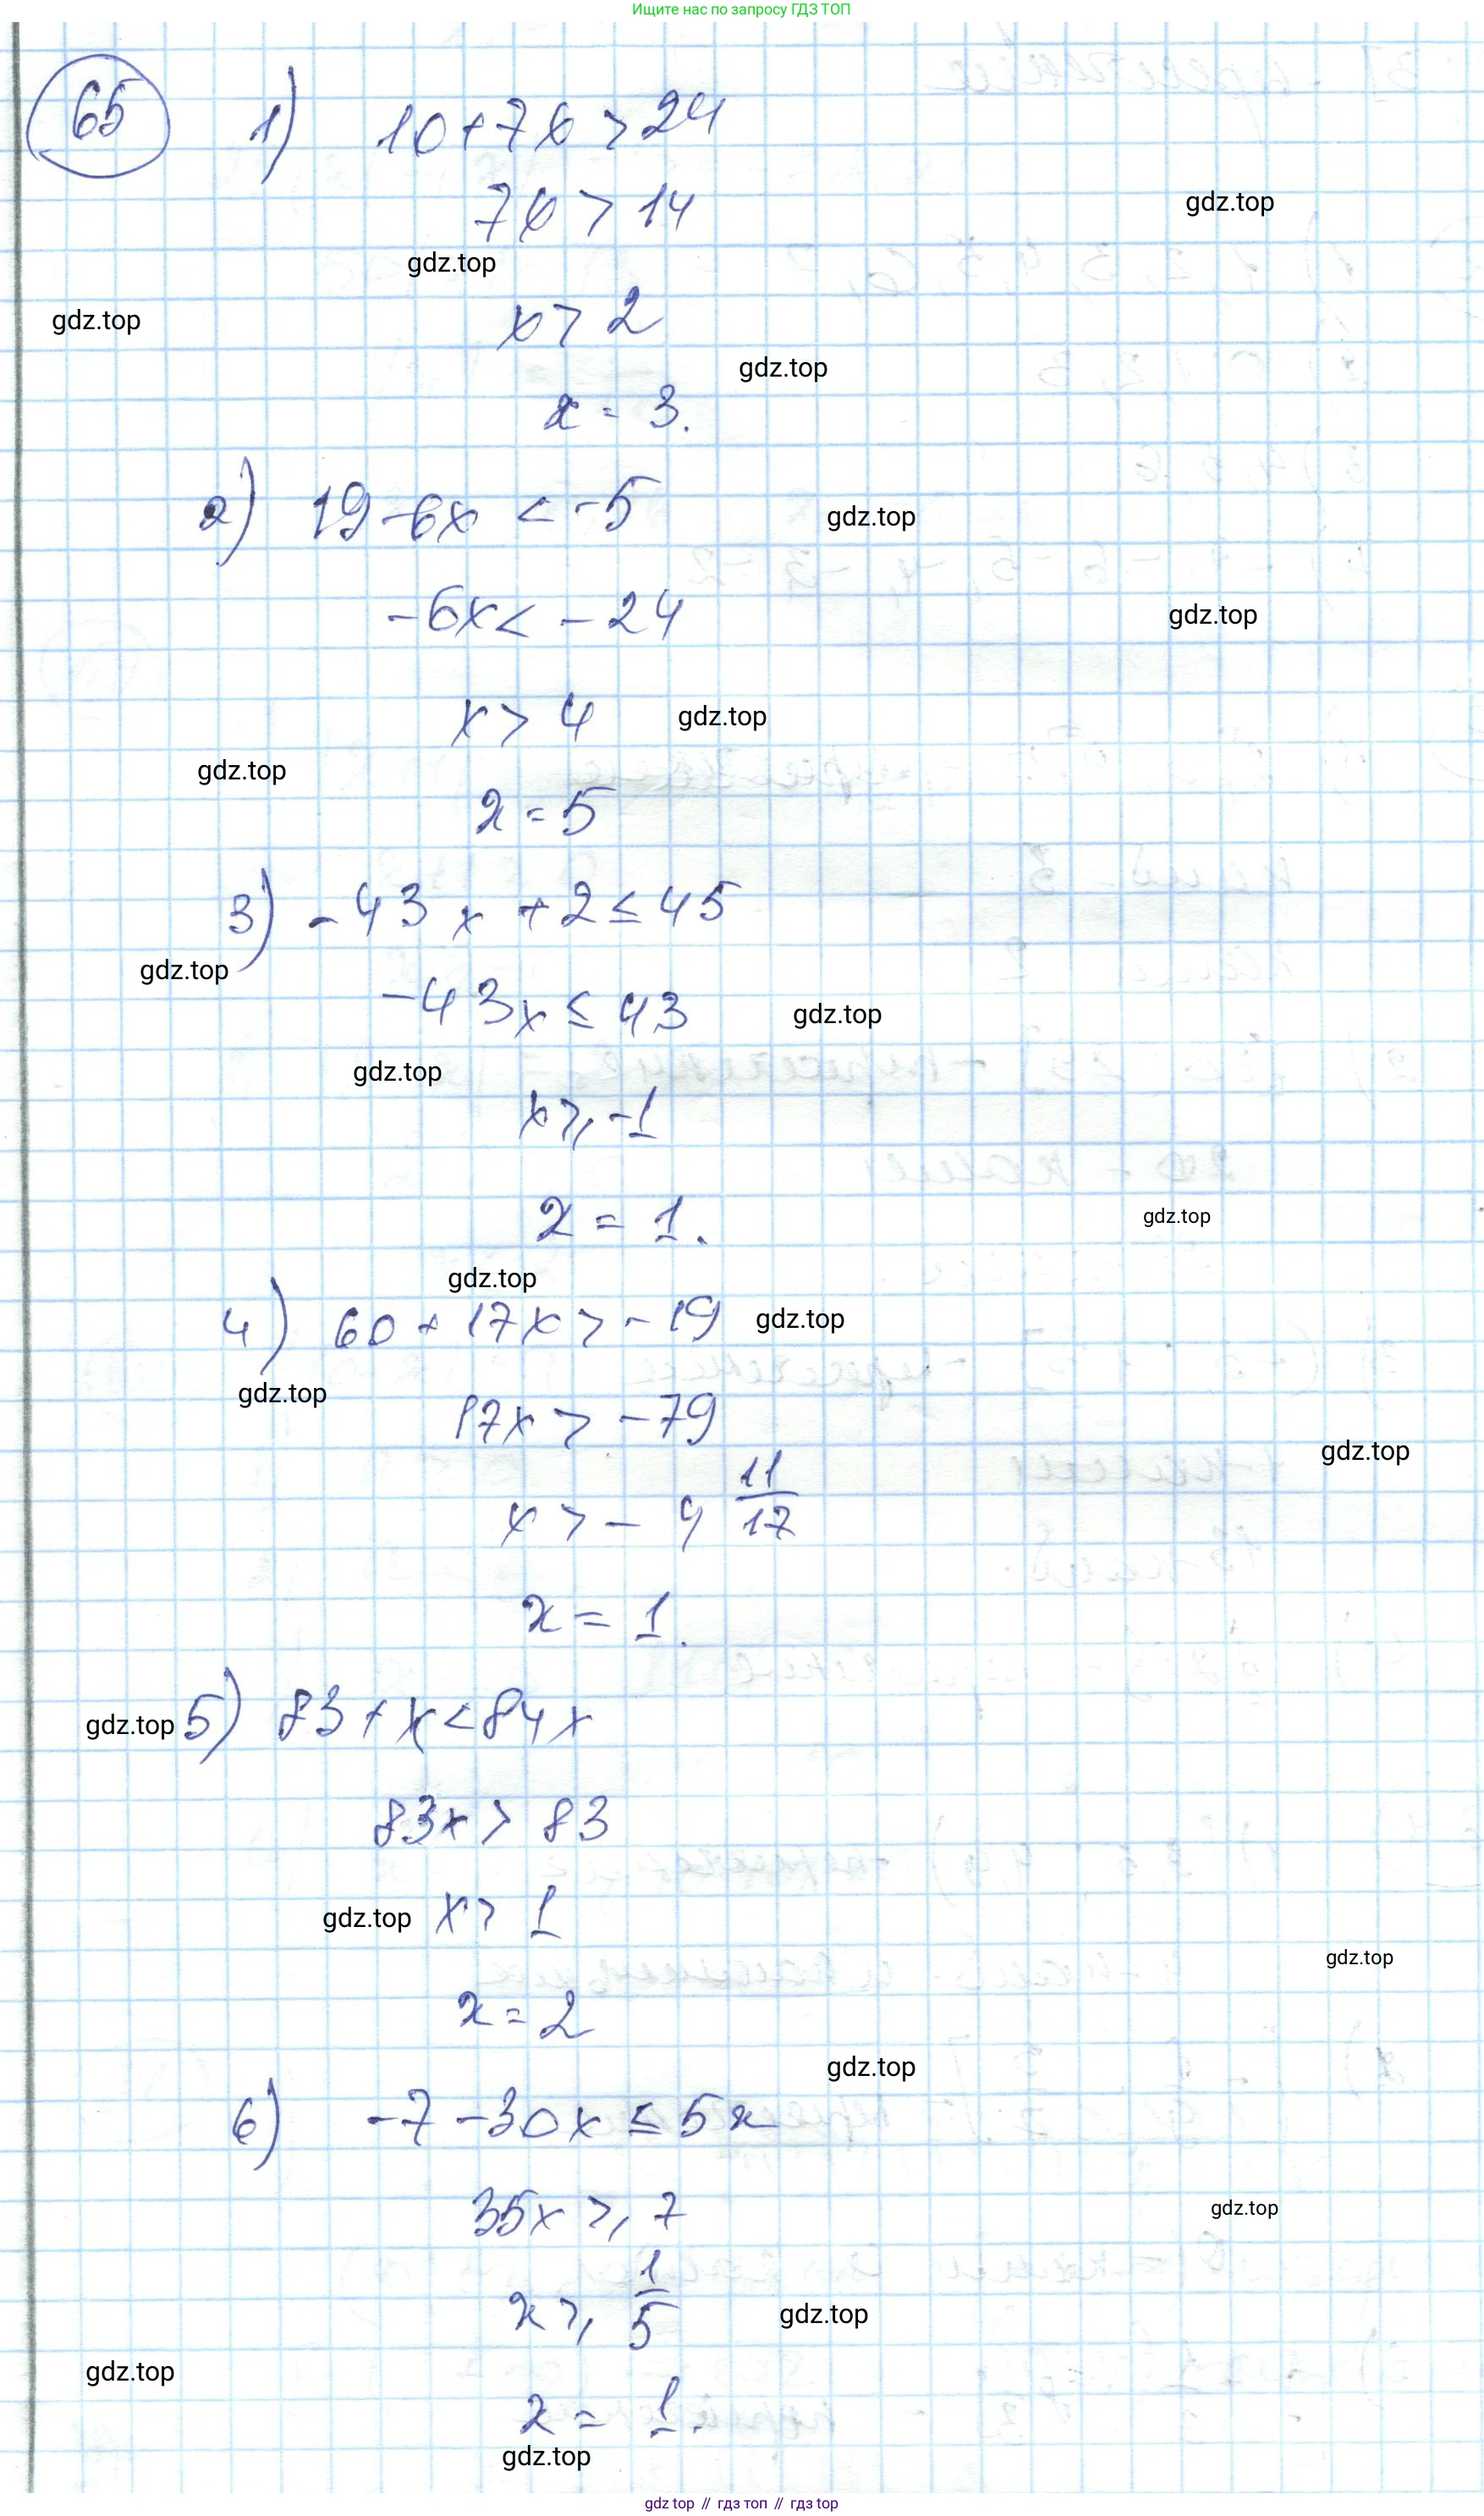 Ищите нас по запросу ГДЗ ТОП
65 1) 10 + 7x > 24
7x > 14
gdz.top
gdz.top
gdz.top
x > 2
gdz.top
x = 3.
2) 19 - 6x < -5
gdz.top
-6x < -24
gdz.top
x > 4
gdz.top
gdz.top
x = 5
3) -43x + 2 ≤ 45
gdz.top
-43x ≤ 43
gdz.top
gdz.top
x ≥ -1
x = 1.
gdz.top
gdz.top
4) 60 + 17x > -19
gdz.top
gdz.top
17x > -79
gdz.top
x > -4 11/17
x = 1.
gdz.top
5) 83 + x < 84x
83x > 83
gdz.top
x > 1
gdz.top
x = 2
gdz.top
6) -7 - 30x ≤ 5x
35x ≥ 7
gdz.top
x ≥ 1/5
gdz.top
gdz.top
x = 1.
gdz.top
gdz top // гдз топ // гдз top